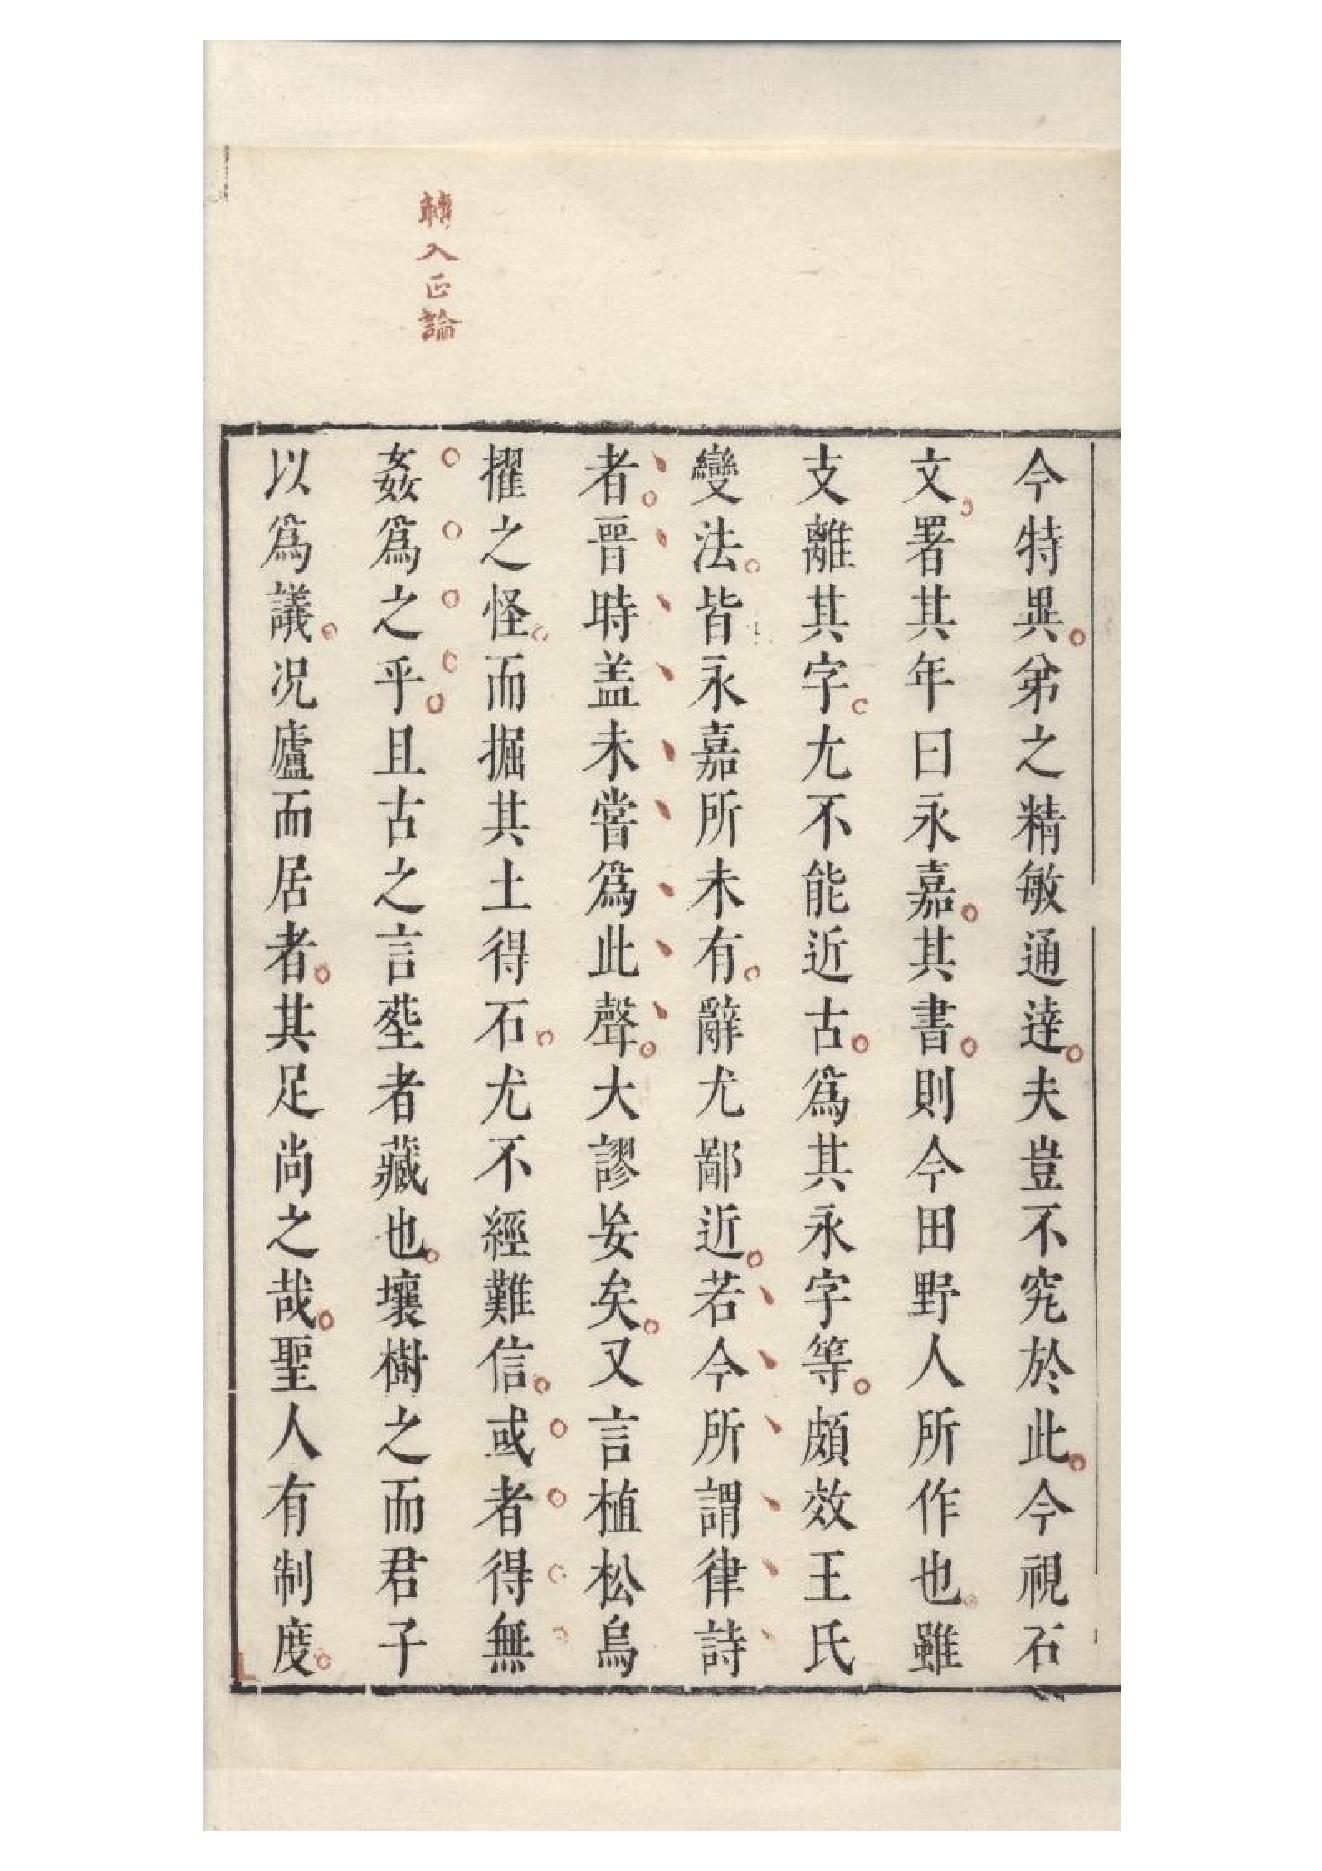 轉入正論
今特異弟之精敏通達夫豈不究於此今視石
文署其年曰永嘉其書則今田野人所作也雖
支離其字尤不能近古爲其永字等頗效王氏
變法皆永嘉所未有辭尤鄙近若今所謂律詩
者晉時蓋未嘗爲此聲大謬妄矣又言植松烏
擢之怪而掘其土得石尤不經難信或者得無
姦爲之乎且古之言塟者藏也壤樹之而君子
以爲議况廬而居者其足尚之哉聖人有制度